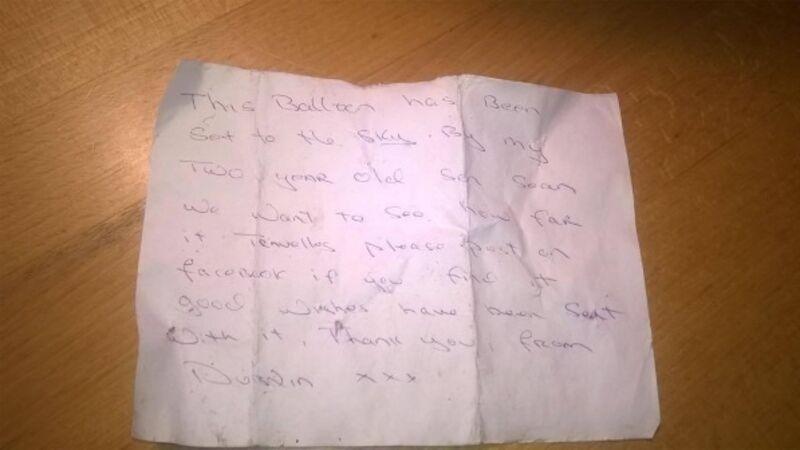 This Balloon has Been
Sent to the sky. By my
Two year old son Sean
we want to see how far
it Travelles please post on
facebook if you find it
good wishes have been sent
with it. Thank you, from
Dublin xxx